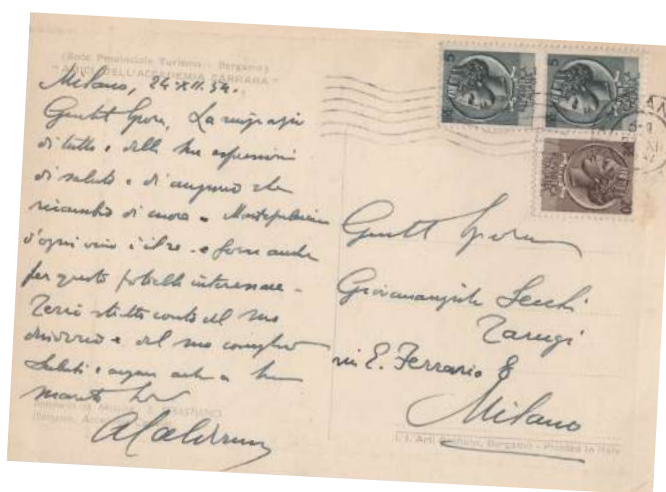 (Sede Provinciale Turismo - Bergamo)
"AMICI DELL'ACCADEMIA CARRARA"
Milano, 24 XII. 54.
Gentil Signora, La ringrazio
di tutto e delle sue espressioni
di saluto e di augurio che
ricambio di cuore. Montepulciano
d'ogni vino è il re. e forse anche
per questo potrebbe interessare.
Terrò stretto conto del suo
desiderio e del suo consiglio
Saluti e auguri anche a suo
marito
Gentil Signora
Giovannangiola Secchi
Tarugi
via E. Ferrario 8
Milano
I. I. Arti Grafiche, Bergamo - Printed in Italy